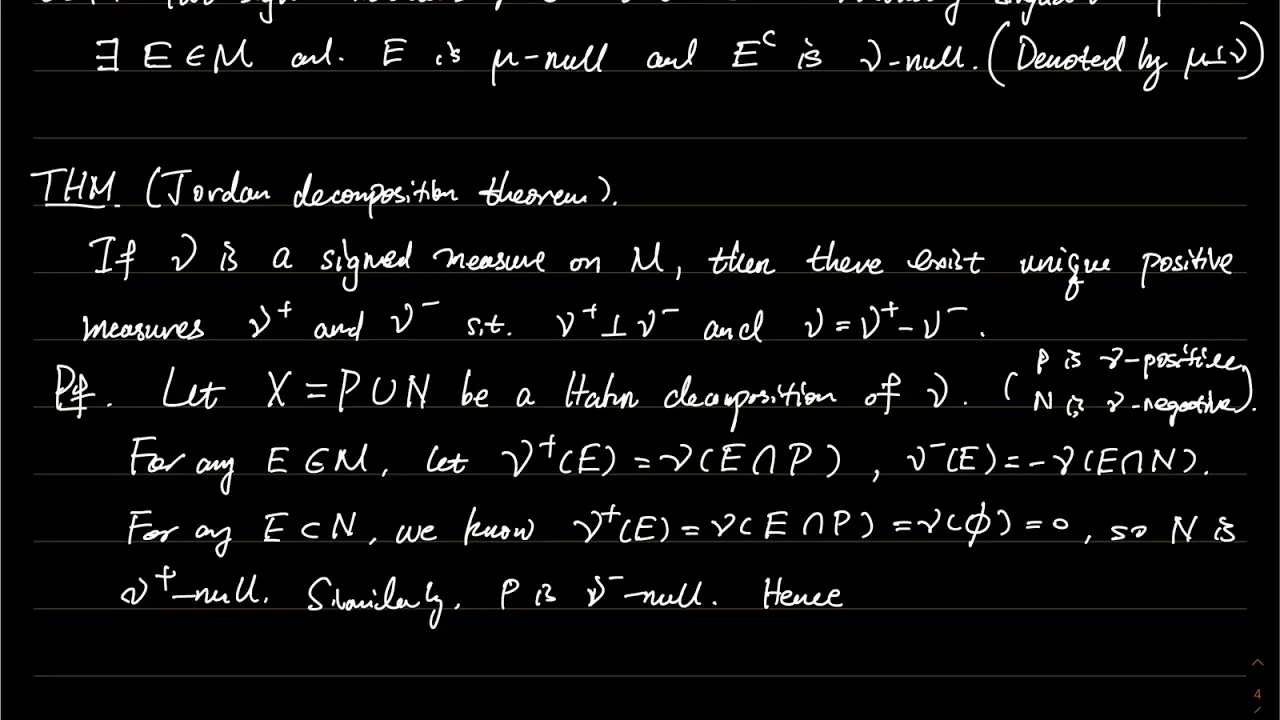 ∃ E ∈ M and. E is μ-null and Eᶜ is ν-null. (Denoted by μ⊥ν)
THM. (Jordan decomposition theorem).
If ν is a signed measure on M, then there exist unique positive
measures ν⁺ and ν⁻ s.t. ν⁺⊥ν⁻ and ν=ν⁺-ν⁻.
Pf. Let X = P∪N be a Hahn decomposition of ν. (P is ν-positive, N is ν-negative).
For any E∈M, let ν⁺(E) = ν(E∩P), ν⁻(E)=-ν(E∩N).
For any E⊂N, we know ν⁺(E) = ν(E∩P) = ν(∅) = 0, so N is
ν⁺-null. Similarly, P is ν⁻-null. Hence
4